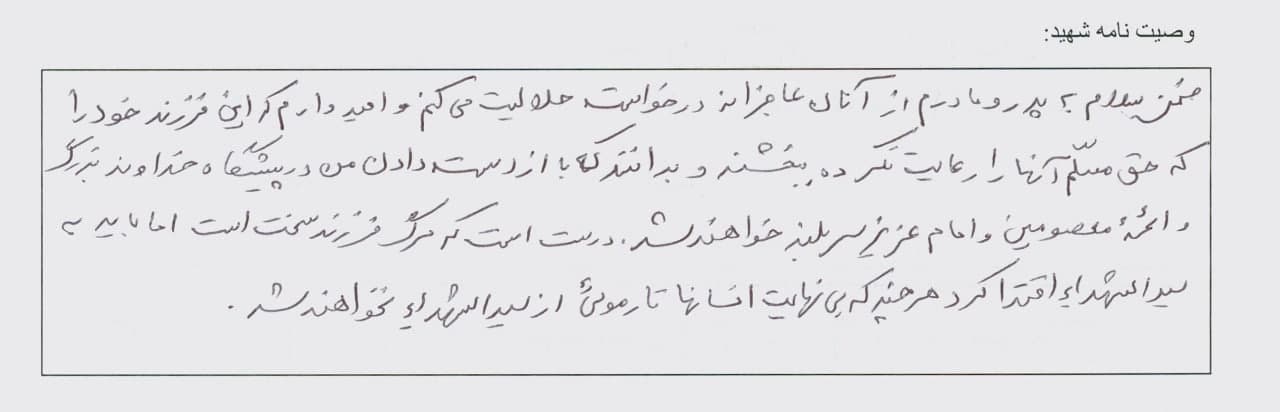 وصیت نامه شهید:
ضمن سلام به پدر و مادرم از آنان عاجزانه درخواست حلالیت می کنم و امیدوارم که این فرزند خود را
که حق مسلّم آنها را رعایت نکرده ببخشند و بدانند که با از دست دادن من در پیشگاه خداوند بزرگ
و ائمهٔ معصومین و امام عزیز سربلند خواهند شد. درست است که مرگ فرزند سخت است اما باید به
سیدالشهداء اقتدا کرد هر چند که بی نهایت انسانها تار موئی از سیدالشهداء نخواهند شد.